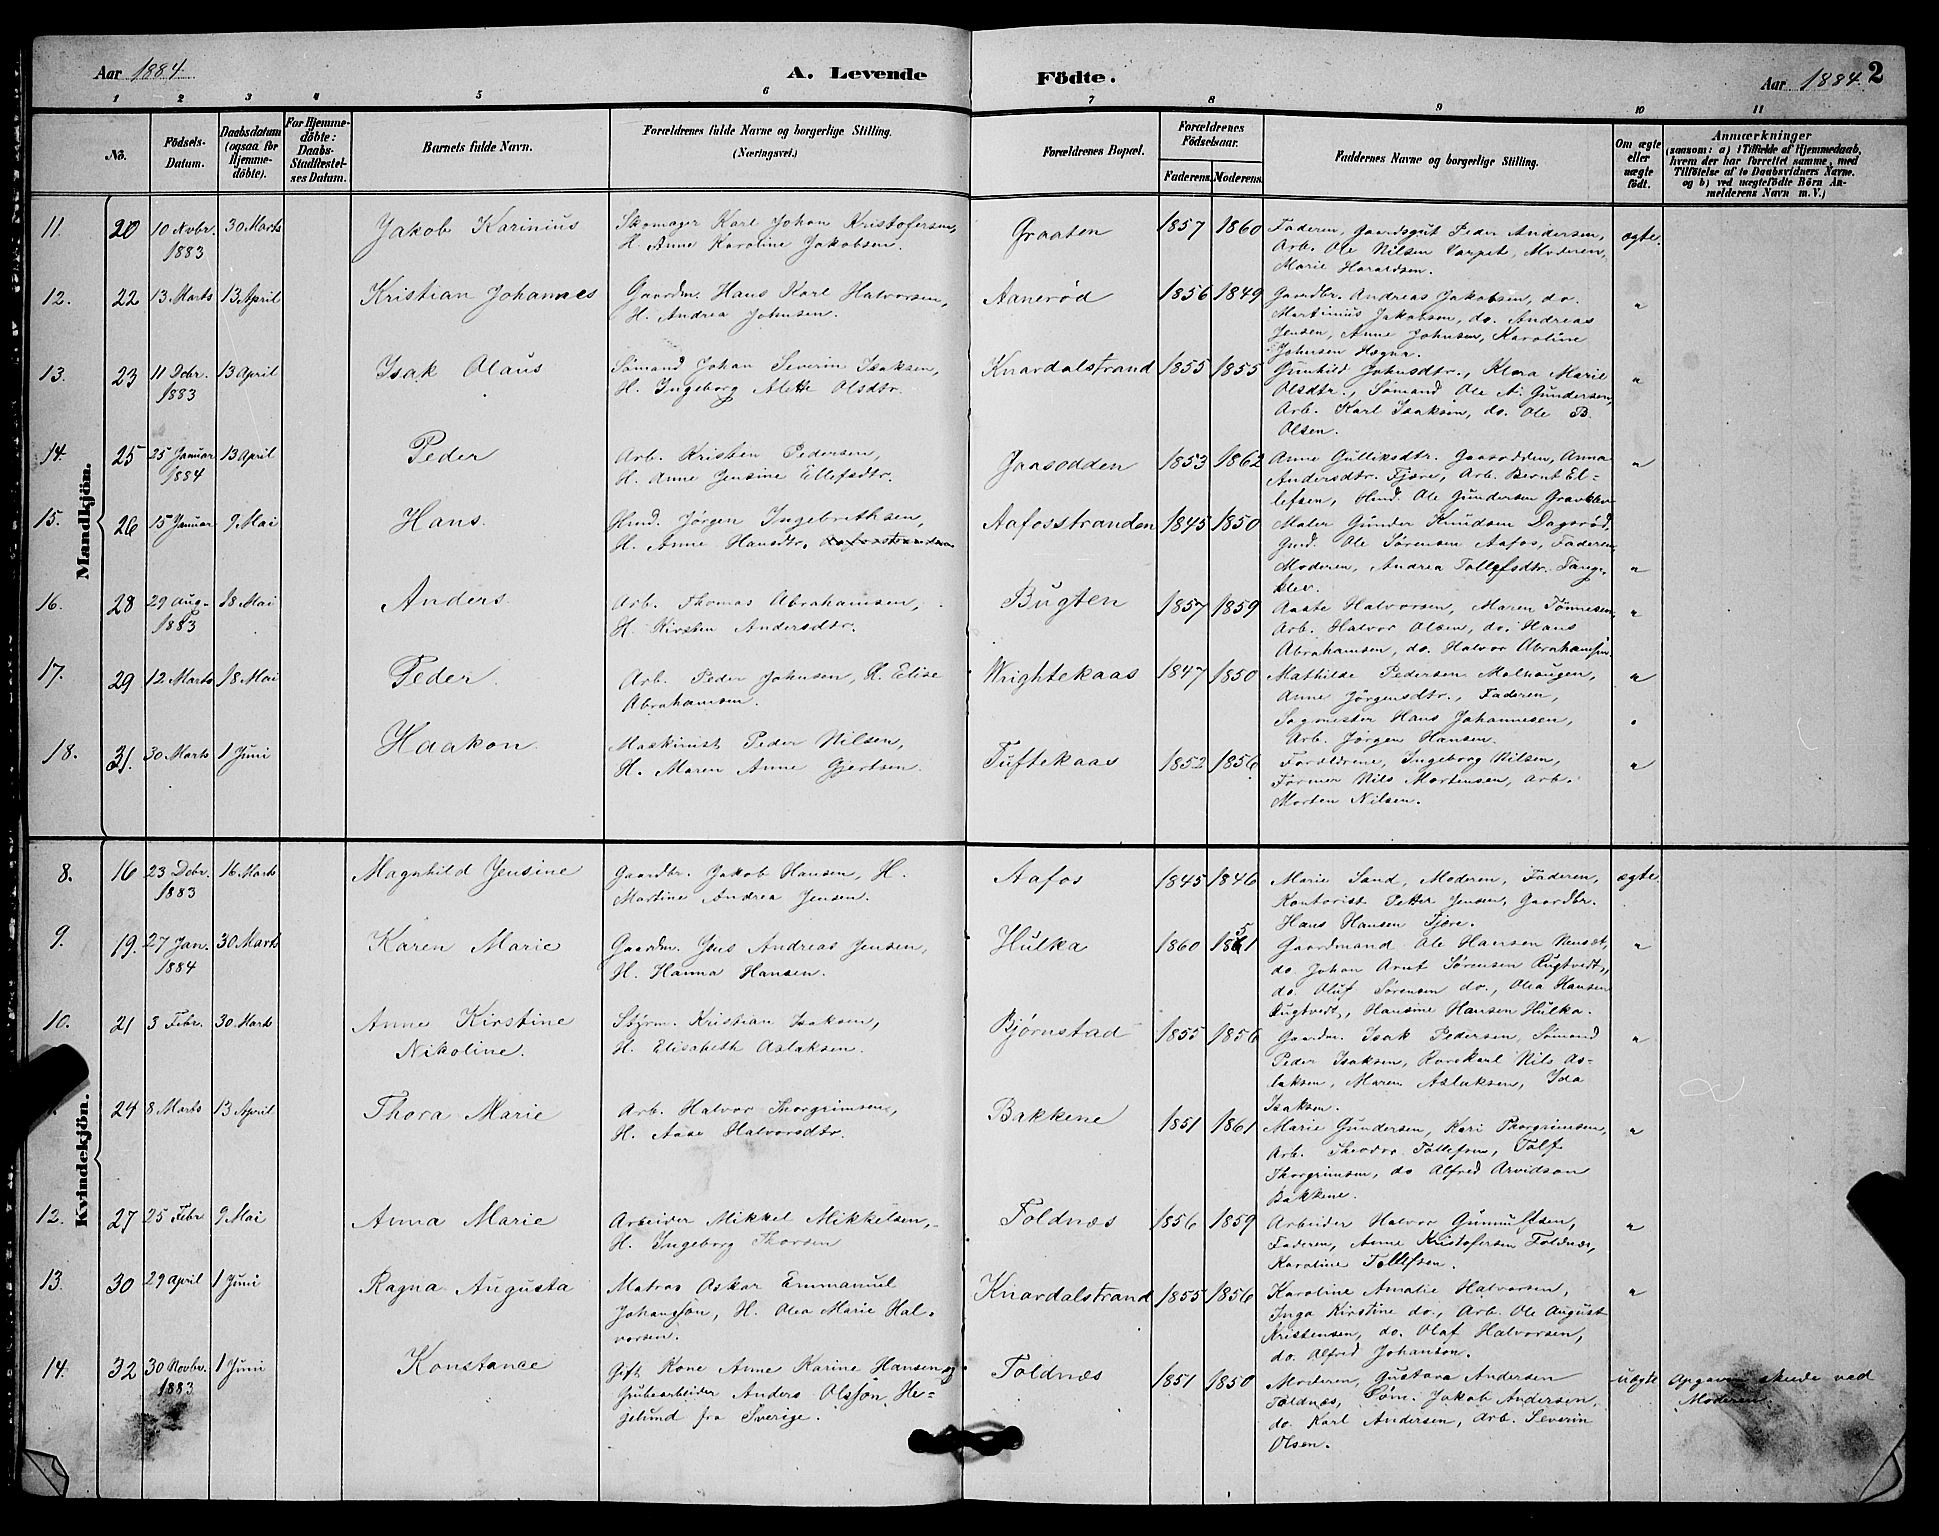 Aar 1884. A. Levende Födte. Aar 1884. 2
1 2 3 4 5 6 7 8 9 10 11
No. Födsels-Datum. Daabsdatum (ogsaa for Hjemmedöbte). For Hjemmedöbte: Daabs-Stadfæstelses Datum. Barnets fulde Navn. Forældrenes fulde Navne og borgerlige Stilling. (Næringsvei.) Forældrenes Bopæl. Forældrenes Födselsaar. Faderens. Moderens. Faddernes Navne og borgerlige Stilling. Om ægte eller uægte födt. Anmærkninger (saasom: a) i Tilfælde af Hjemmedaab, hvem der har forrettet samme, med Tilföielse af to Daabsvidners Navne. og b) ved uægtefödte Börn Anmelderens Navn m. V.)
Mandkjön.
11. 20 10 Novbr. 1883 30 Marts Jakob Karinius Skomager Karl Johan Kristofersen, H. Anne Karoline Jakobsen. Graaten 1857 1860 Faderen, Gaardsgut Peder Andersen, Arb. Ole Nilsen Varpet, Moderen, Marie Haraldsen. ægte.
12. 22 13 Marts 13 April Kristian Johannes Gaardm. Hans Karl Halvorsen, H. Andrea Johnsen. Aanerød 1856 1849 Gaardbr. Andreas Jakobsen, do. Martinius Jakobsen, do. Andreas Jensen, Anne Johnsen, Karoline Johnsen Hægna. "
13. 23 11 Debr. 1883 13 April Isak Olaus Sømand Johan Severin Isaksen, H. Ingeborg Alette Olsdtr. Knardalstrand 1855 1855 Gunhild Johnsdtr., Klara Marie Olsdtr., Sømand Ole A. Gundersen, Arb. Karl Isaksen, do. Ole B. Olsen. "
14. 25 25 Januar 1884 13 April Peder Arb. Kristen Pedersen, H. Anne Jensine Ellefsdtr. Jaasodden 1853 1862 Anne Gulliksdtr. Gaasodden, Anna Andersdtr. Fjære, Arb. Bernt Ellefsen, Hmd. Ole Gundersen Gravklev "
15. 26 15 Januar 9 Mai Hans. Hmd. Jörgen Ingebrethsen, H. Anne Hansdtr. Aafosstranden Aafosstranden 1845 1850 Maler Gunder Knudsen Dagsrød, Gmd. Ole Sørensen Aafos, Faderen, Moderen, Andrea Tollefsdtr. Tangeklev. "
16. 28 29 Aug. 1883 18 Mai Anders. Arb. Thomas Abrahamsen, H. Kirsten Andersdtr. Bugten 1857 1859 Aaste Halvorsen, Maren Tønnesen, Arb. Halvor Olsen, do. Hans Abrahamsen, do. Halvor Abrahamsen. "
17. 29 12 Marts 18 Mai Peder. Arb. Peder Johnsen, H. Elise Abrahamsen. Wrightekaas 1847 1850 Mathilde Pedersen Molhaugen, Anne Jörgensdtr., Faderen, Sagmester Hans Johannesen, Arb. Jørgen Hansen. "
18. 31. 30 Marts 1 Juni Haakon. Maskinist Peder Nilsen, H. Maren Anne Gjertsen. Tuftekaas 1852 1856 Forældrene, Ingeborg Nilsen, Former Nils Mortensen, Arb. Morten Nilsen. "
Kvindekjön.
8. 16 23 Debr. 1883 16 Marts Magnhild Jensine Gaardbr. Jakob Hansen, H. Martine Andrea Jensen. Aafos 1845 1846 Marie Sand, Moderen, Faderen, Kontorist Petter Jensen, Gaardbr. Hans Hansen Fjære. ægte.
9. 19. 27 Jan. 1884 30 Marts Karen Marie Gaardm. Jens Andreas Jensen, H. Hanna Hansen. Hulka 1860 1851 Gaardmand Ole Hansen Nensæt, do. Johan Arnt Sørensen Rugtvedt, do. Oluf Sørensen do., Olea Hansen Rugtvedt, Hansine Hansen Hulka. "
10. 21 3 Febr. 30. Marts Anne Kirstine Nikoline. Styrm. Kristian Isaksen, H. Elisabeth Aslaksen. Bjørnstad 1855 1856 Gaardm. Isak Pedersen, Sømand Peder Isaksen, Rorskarl Nils Aslaksen, Maren Aslaksen, Ida Isaksen. "
24 8 Marts 13 April Thora Marie Arb. Halvor Thorgrimsen, H. Aase Halvorsdtr. Bakkene 1851 1861 Marie Gundersen, Kari Thorgrimsen, Arb. Theodor Tollefsen, Tolf Thorgrimsen, do Alfred Arvidson Bakkene. "
12. 27 25 Febr 9 Mai Anna Marie Arbeider Mikkel Mikkelsen, H. Ingeborg Thorsen Toldnæs 1856 1859 Arbeider Halvor Gunnulfsen, Faderen, Anne Kristofersen Toldnæs, Karoline Tollefsen. "
13. 30 29 April 1 Juni Ragna Augusta Matros Askar Emmanuel Johansson, H. Olea Marie Halvorsen. Knardalstrand 1855 1856 Karoline Amalie Halvorsen, Inga Kirstine do., Arb. Ole August Kristensen, do. Olaf Halvorsen, do. Alfred Johanson. "
14. 32 30 Novbr. 1883 1 Juni Konstance Gift Kone Anne Karine Hansen og Grubearbeider Anders Olsson Hegelund fra Sverige. Toldnæs 1851 1850 Moderen, Gustava Andersen Toldnæs, Søm. Jakob Andersen, do. Karl Andersen, Arb. Severin Olsen. uægte Opgaven skede ved Moderen.